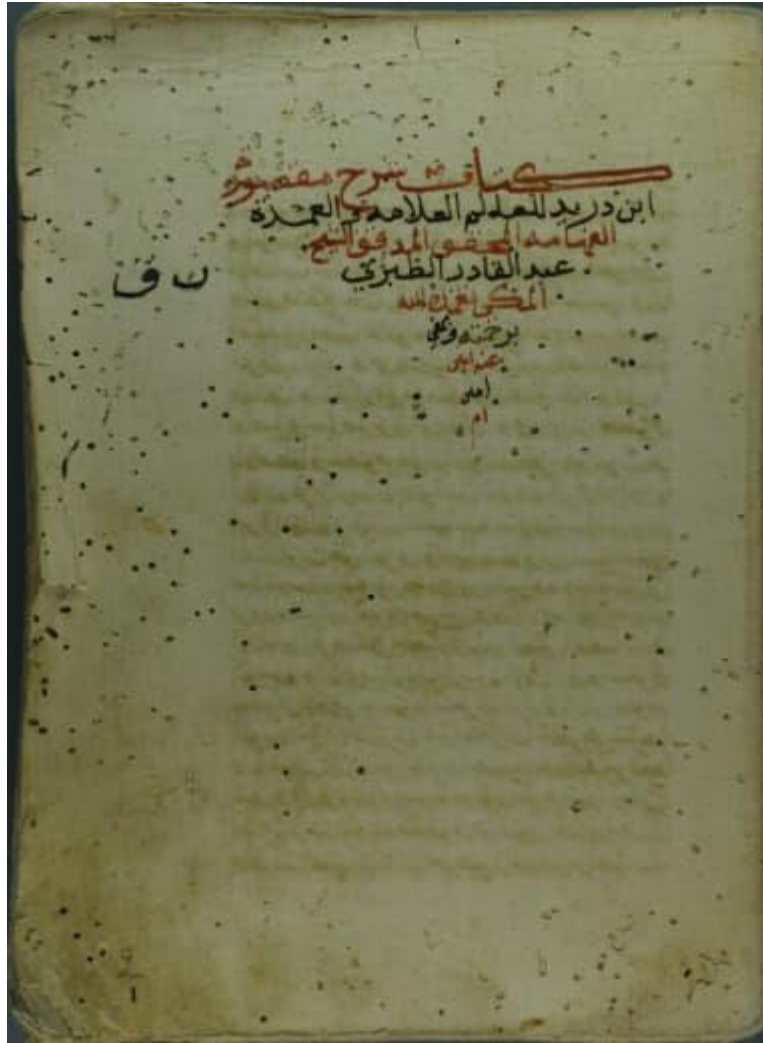 كتاب شرح مقصورة
ابن دريد للعالم العلامة العمدة
الفهامة المحقق المدقق الشيخ
عبد القادر الطبري
المكي تغمده الله
برحمته
امين
ام